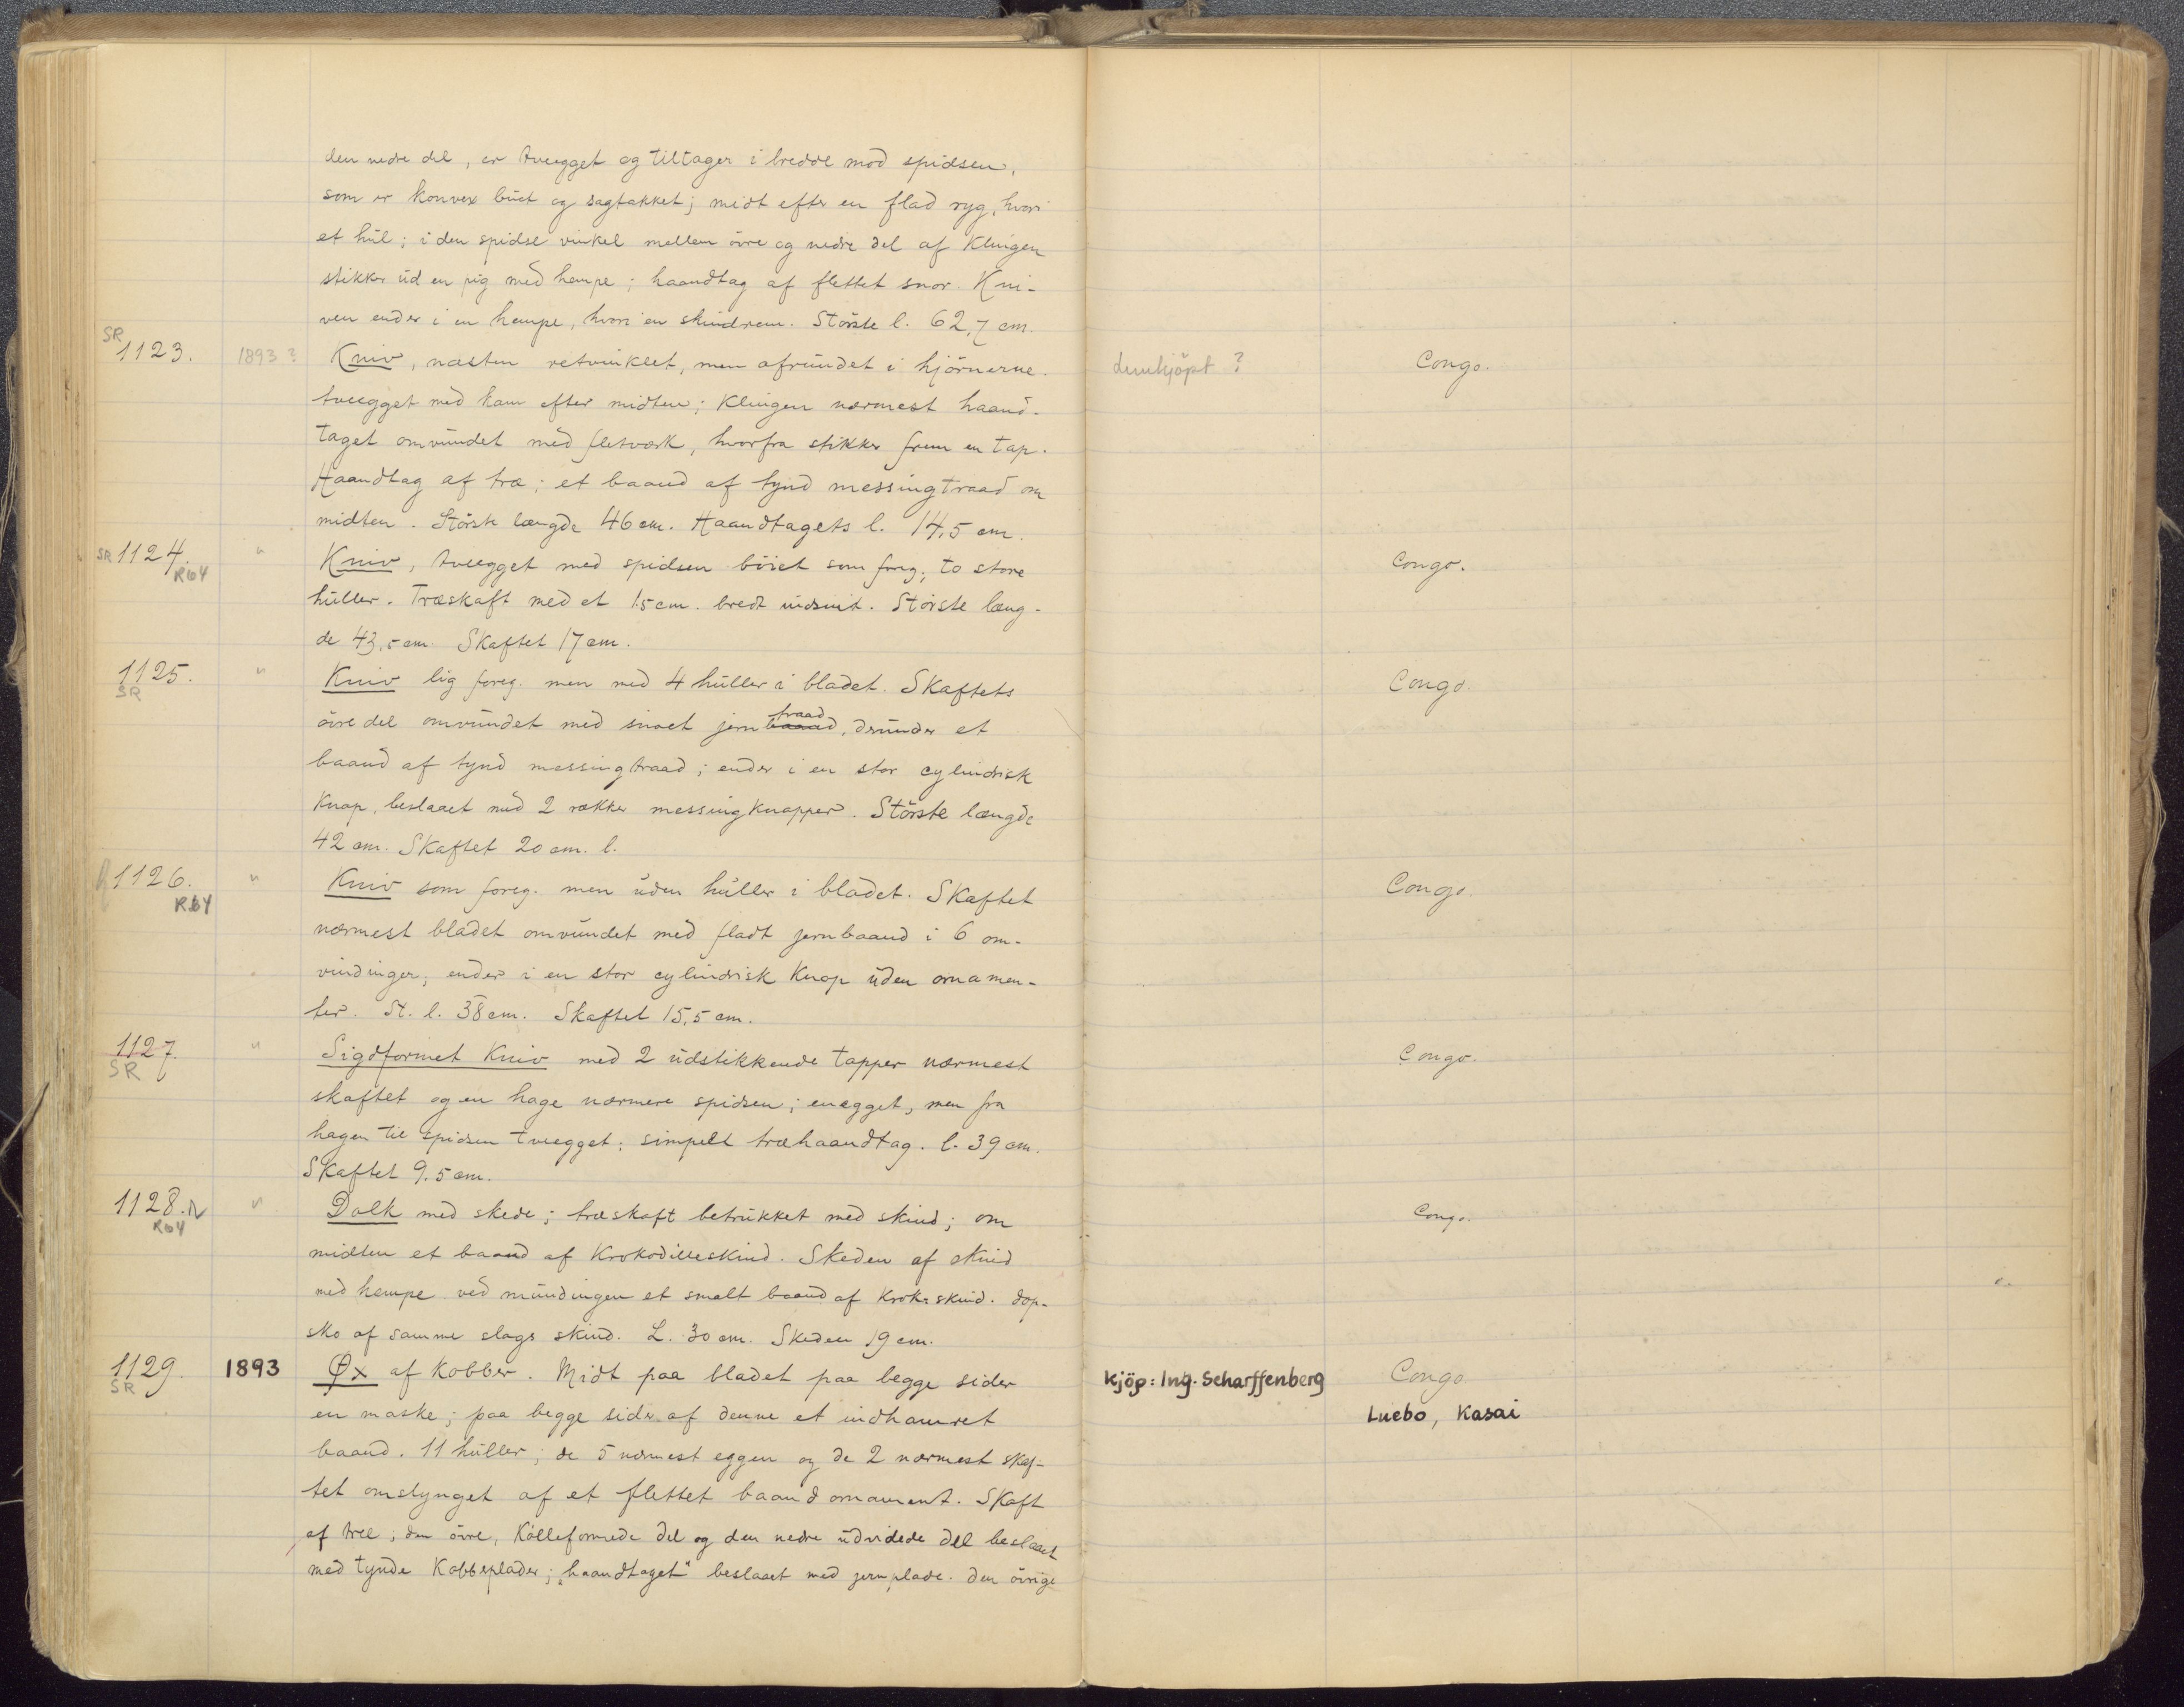 den nedre del, er tveegget og tiltager i bredde mod spidsen,
som er konvex buet og sagtakket; midt efter en flad ryg, hvori
et hul; i den spidse vinkel mellem övre og nedre del af Klingen
stikker ud en pig med hempe; haandtag af flettet snor. Kni-
ven ender i en hempe, hvori en skindrem. Störste l. 62,7 cm.
SR 1123. 1893? Kniv, næsten retvinklet, men afrundet i hjörnerne. Congo.
tveegget med kam efter midten; Klingen nærmest haand-
taget omvundet med fletværk, hvorfra stikker frem en tap.
Haandtag af træ; et baand af tynd messingtraad om
midten. Störste længde 46 cm. Haandtagets l. 14,5 cm.
SR 1124. R104 " Kniv, tveegget med spidsen böiet som foreg.; to store Congo.
huller. Træskaft med et 1.5 cm. bredt indsnit. Störste læng-
de 43,5 cm. Skaftet 17 cm.
1125. SR " Kniv lig foreg. men med 4 huller i bladet. Skaftets Congo.
övre del omvundet med snoet jernbaand traad, derunder et
baand af tynd messingtraad; ender i en stor cylindrisk
Knap, beslaaet med 2 rækker messingknapper. Störste længde
42 cm. Skaftet 20 cm. l.
1126. R104 " Kniv som foreg. men uden huller i bladet. Skaftet Congo.
nærmest bladet omvundet med fladt jernbaand i 6 om-
vindinger, ender i en stor cylindrisk Knap uden ornamen-
ter. St. l. 38 cm. Skaftet 15,5 cm.
1127. SR " Sigdformet Kniv med 2 udstikkende tapper nærmest Congo.
skaftet og en hage nærmere spidsen; enegget, men fra
hagen til spidsen tveegget; simpelt træhaandtag. l. 39 cm.
Skaftet 9.5 cm.
1128. R104 " Dolk med skede; træskaft betrukket med skind; om Congo.
midten et baand af Krokodilleskind. Skeden af skind
med hempe ved mundingen et smalt baand af Krok. skind. Dop-
sko af samme slags skind. L. 30 cm. Skeden 19 cm.
1129. SR 1893 Øx af Kobber. Midt paa bladet paa begge sider Kjöp: Ing. Scharffenberg Congo
en maske; paa begge sider af denne et indhamret Luebo, Kasai
baand. 11 huller; de 5 nærmest eggen og de 2 nærmest skaf-
tet omslynget af et flettet baandornament. Skaft
af træ; den övre, Kölleformede del og den nedre udvidede del beslaaet
med tynde Kobberplader; "haandtaget" beslaaet med jernplade. Den övrige